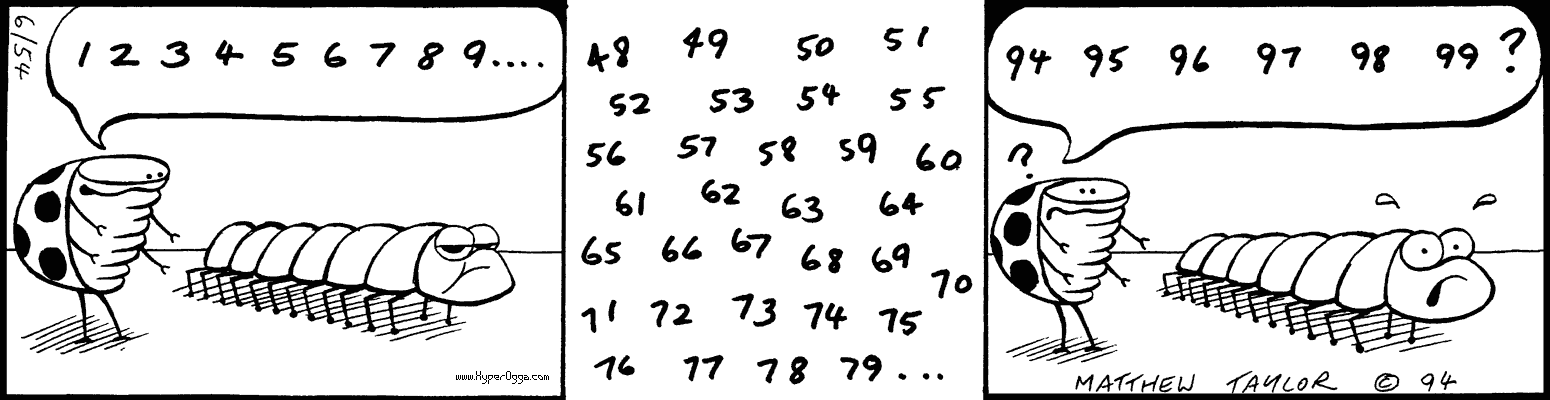 6/54
1 2 3 4 5 6 7 8 9....
www.HyperOgga.com
48 49 50 51
52 53 54 55
56 57 58 59 60
61 62 63 64
65 66 67 68 69
70
71 72 73 74 75
76 77 78 79...
94 95 96 97 98 99 ?
?
MATTHEW TAYLOR © 94